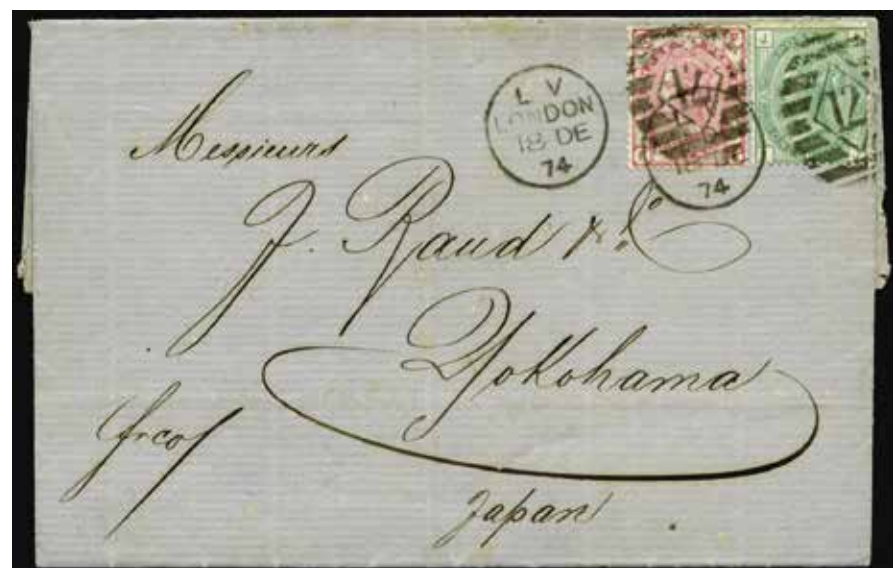 L V
LONDON
18 DE
74
12
12
74
Messieurs
J. Raud & Co
Yokohama
frco
Japan